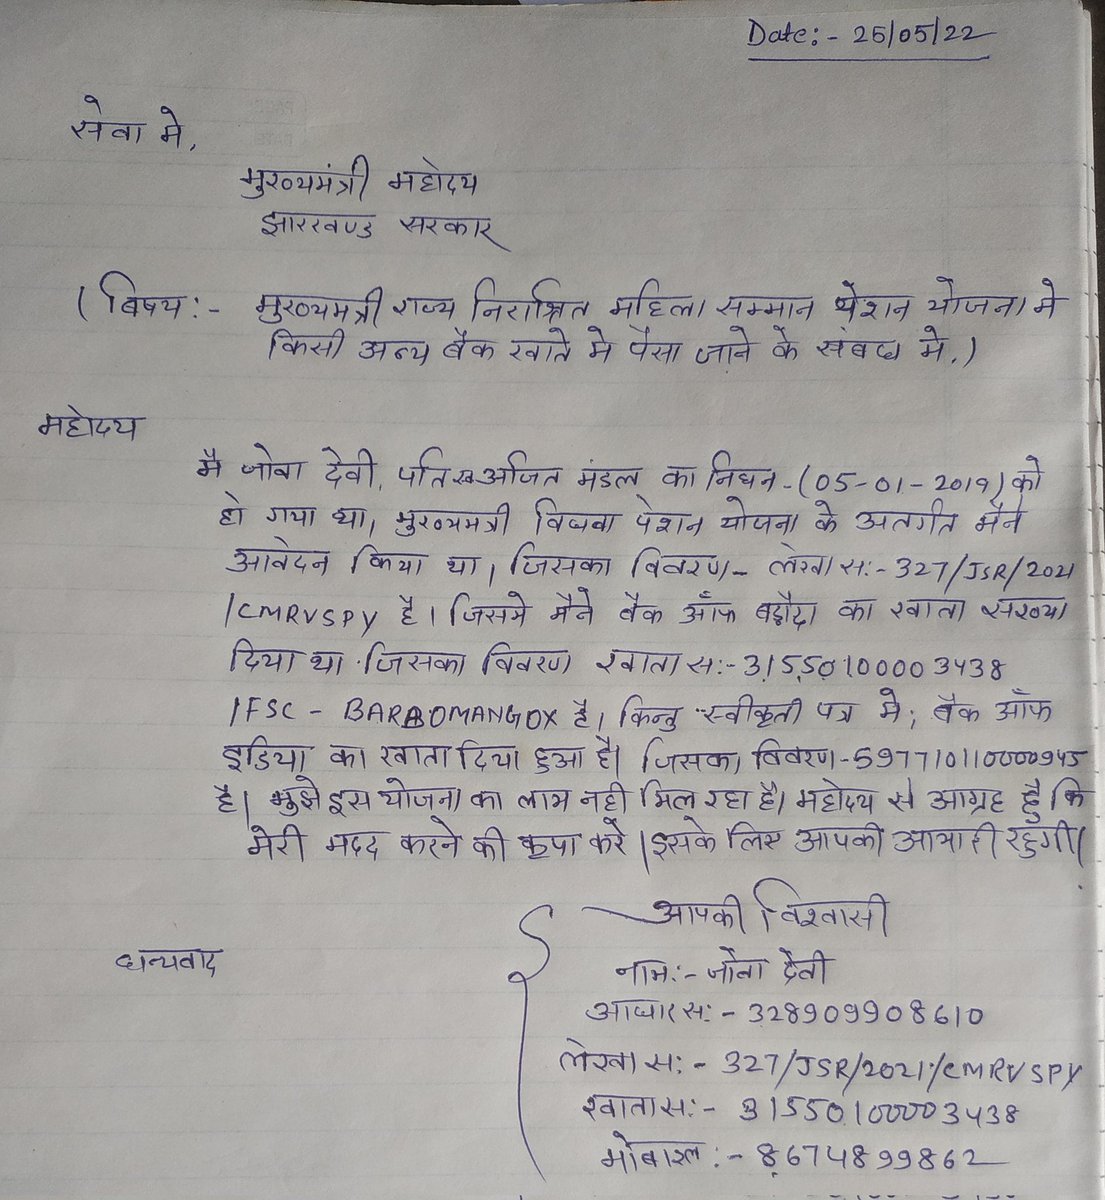 Date:- 25/05/22
सेवा मे,
मुख्यमंत्री महोदय
झारखण्ड सरकार
(विषय:- मुख्यमत्री राज्य निराश्रित महिला सम्मान पेशन योजना मे
किसी अन्य बैक खाते मे पैसा जाने के संबध मे.)
महोदय
मै जोबा देवी, पति स्व अजित मंडल का निधन-(05-01-2019) को
हो गया था, मुख्यमत्री विधवा पेशन योजना के अतर्गत मैने
आवेदन किया था, जिसका विवरण- लेखा स:- 327/JSR/2021
/CMRVSPY है। जिसमे मैने बैक ऑफ बड़ौदा का खाता सख्या
दिया था जिसका विवरण खाता स:- 31550100003438
IFSC - BARB0MANGOX है, किन्तु स्वीकृती पत्र मे, बैक ऑफ
इडिया का खाता दिया हुआ है। जिसका विवरण-597710110000945
है। मुझे इस योजना का लाभ नही मिल रहा है। महोदय से आग्रह है कि
मेरी मदद करने की कृपा करे। इसके लिए आपकी आभारी रहुगी।
आपकी विश्वासी
धन्यवाद
नाम:- जोबा देवी
आधार स:- 328909908610
लेखा स:- 327/JSR/2021/CMRVSPY
खाता स:- 31550100003438
मोबाइल:- 8674899862